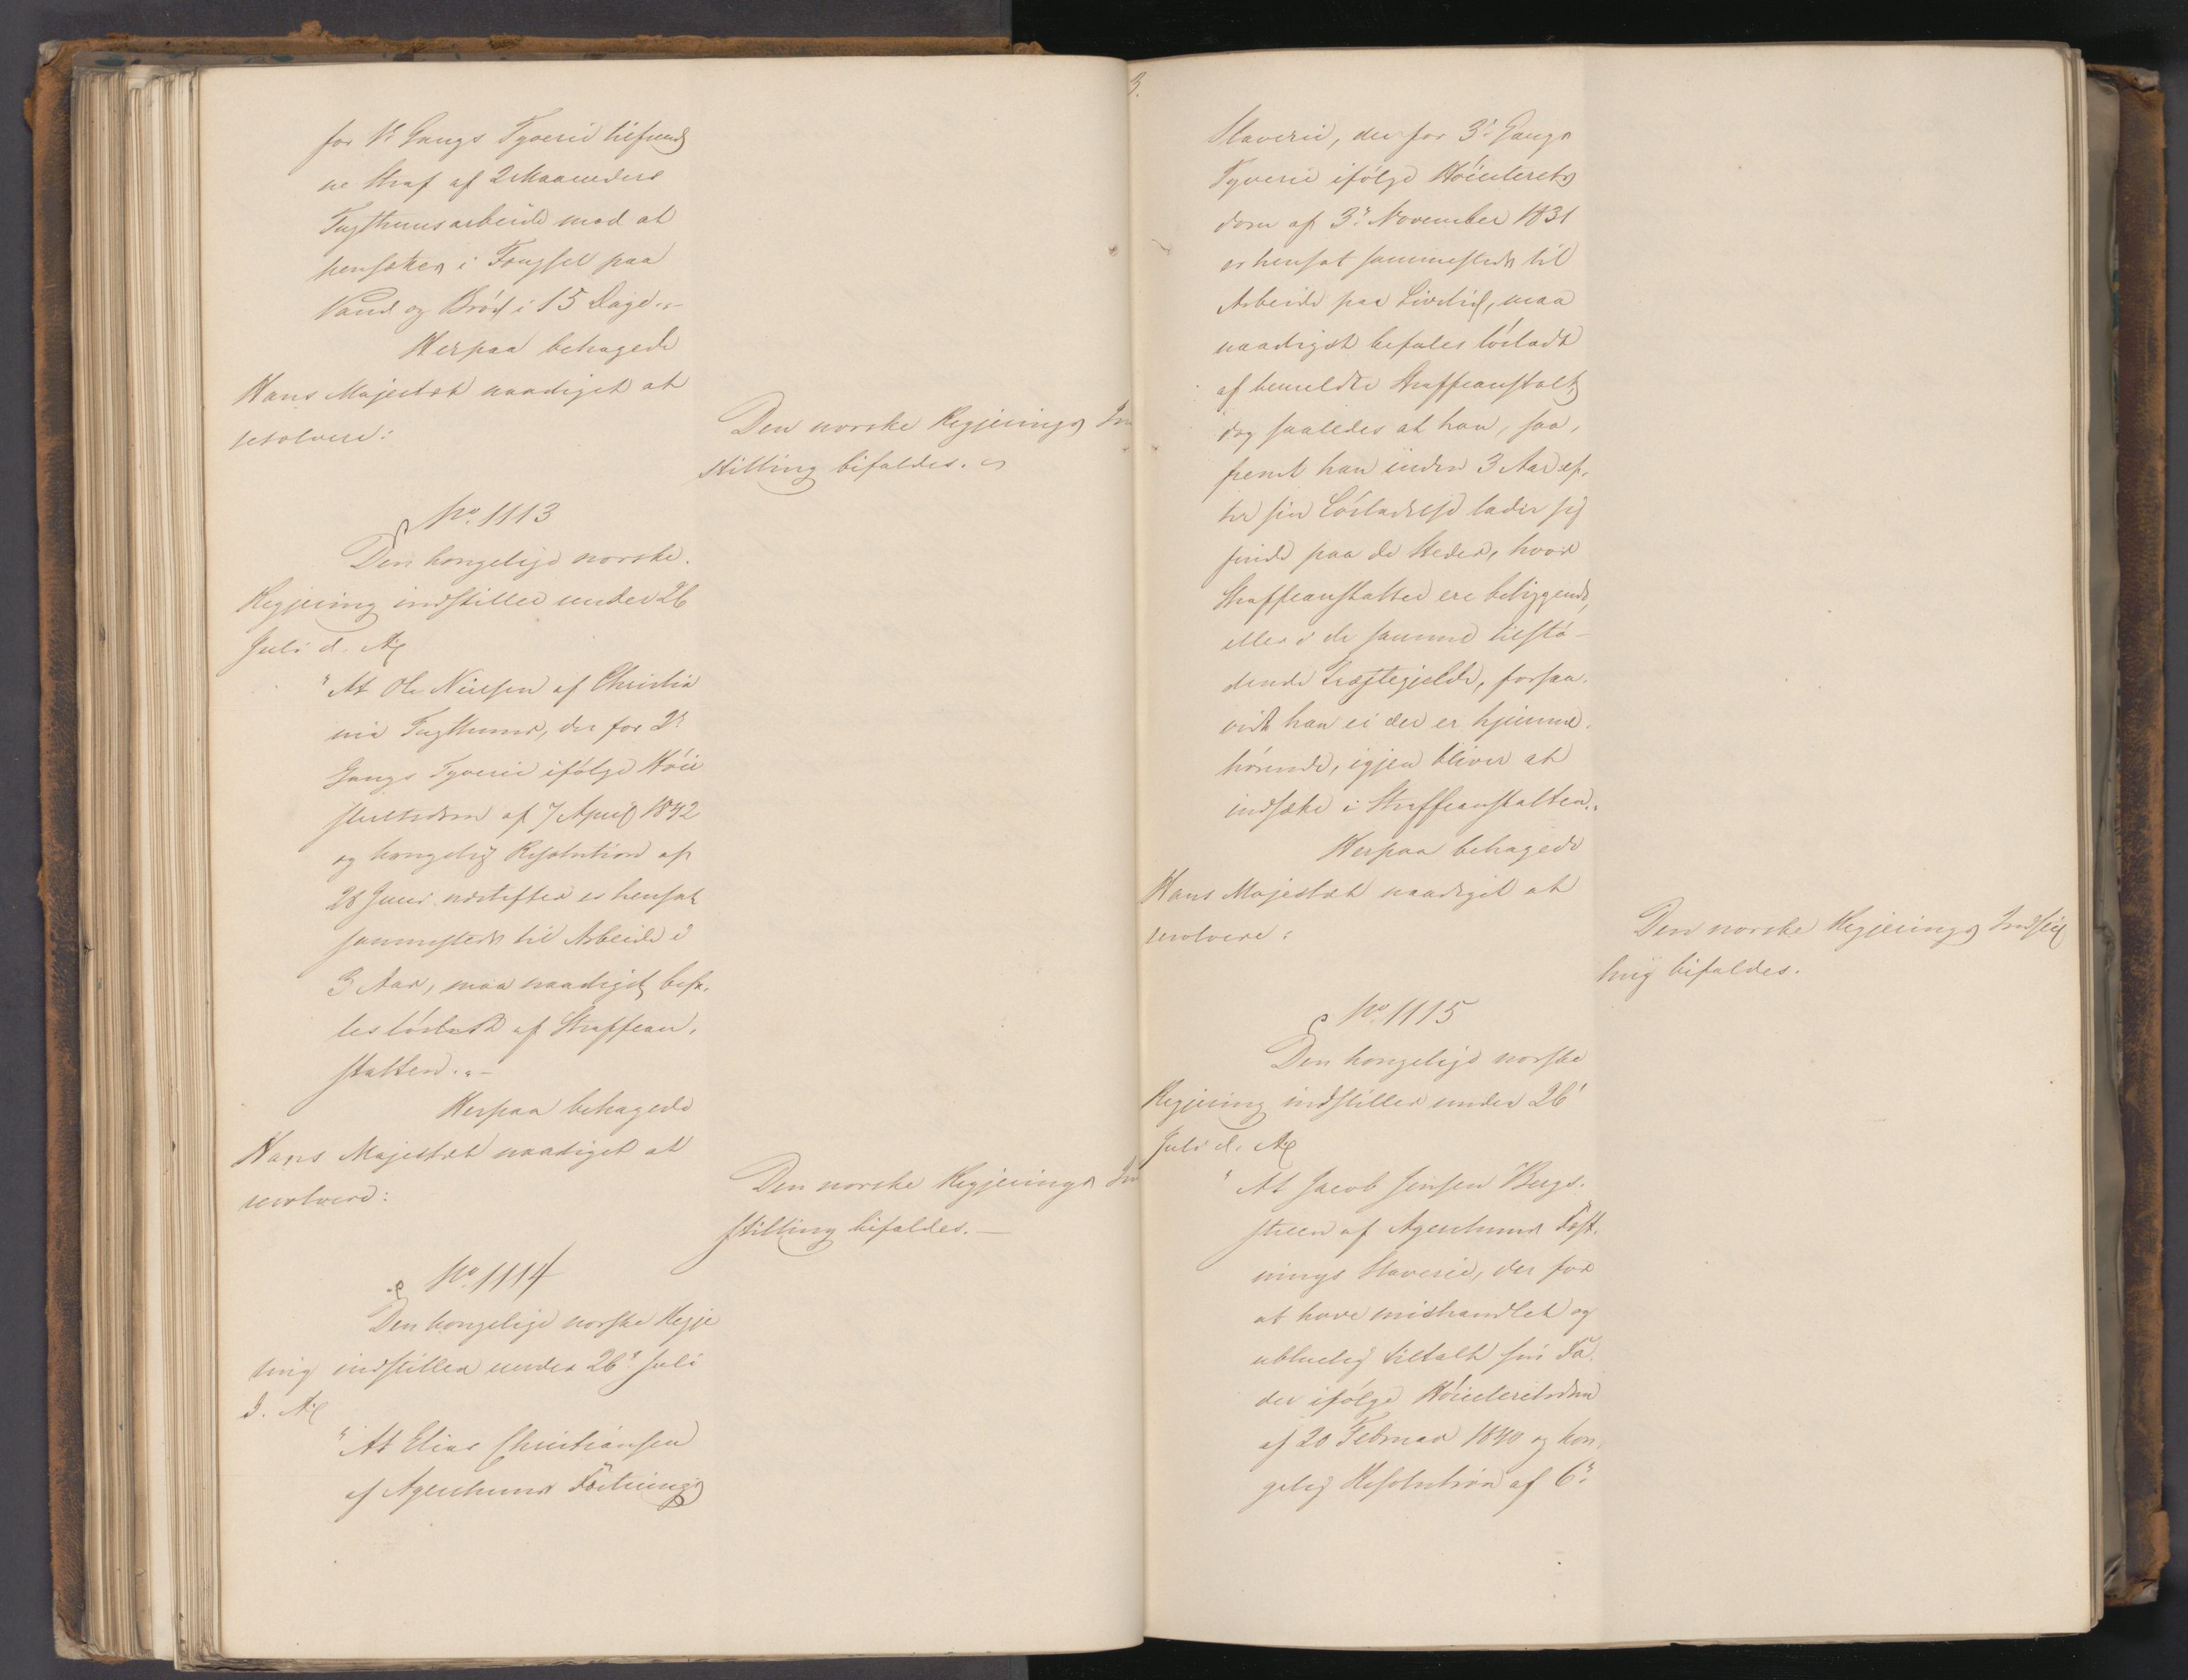 for 1ste Gangs Tyverie tilfund
ne Straf af 2 Maaneders
Tugthuusarbeide mod at
hensættes i Fængsel paa
Vand og Brød i 15 Dage."
Herpaa behagede
Hans Majestæt naadigst at
resolvere:
Den norske Regjerings In
stilling bifaldes.
No. 1113
Den kongelige norske
Regjering indstiller under 26
Juli d. A:
"At Ole Nielsen af Christia
nia Tugthuus, der for 2den
Gangs Tyverie ifølge Høie
steretsdom af 7 April 1842
og kongelig Resolution af
28 Juni næstefter er hensat
sammesteds til Arbeide i
3 Aar, maa naadigst befa-
les løsladt af Straffean-
stalten."
Herpaa behagede
Hans Majestæt naadigst at
resolvere:
Den norske Regjerings In
stilling bifaldes.
No. 1114
Den kongelige norske Regje
ring indstiller under 26de Juli
d. A:
"At Elias Christiansen
af Agershuus Fæstnings
3.
Slaverie, der for 3die Gangs
Tyverie ifølge Høiesterets
dom af 3die November 1831
er hensat sammesteds til
Arbeide paa Livstid, maa
naadigst befales løsladt
af bemeldte Straffeanstalt,
dog saaledes at han, saa-
fremt han inden 3 Aar ef-
ter sin Løsladelse lader sig
finde paa de Steder, hvor
Straffeanstalter ere beliggende,
eller i de samme tilstø-
dende Præstegjelde, forsaa-
vidt han ei der er hjemme-
hørende, igjen bliver at
indsætte i Straffeanstalten."
Herpaa behagede
Hans Majestæt naadigst at
resolvere:
Den norske Regjerings Indstil
ling bifaldes.
No. 1115
Den kongelige norske
Regjering indstiller under 26
Juli d. A:
"At Jacob Jensen Bergs-
steen af Agershuus Fæst-
nings Slaverie, der for
at have mishandlet og
ubluelig tiltalt sin Fa-
der ifølge Høiesteretsdom
af 20 Februar 1840 og kon-
gelig Resolution af 6te